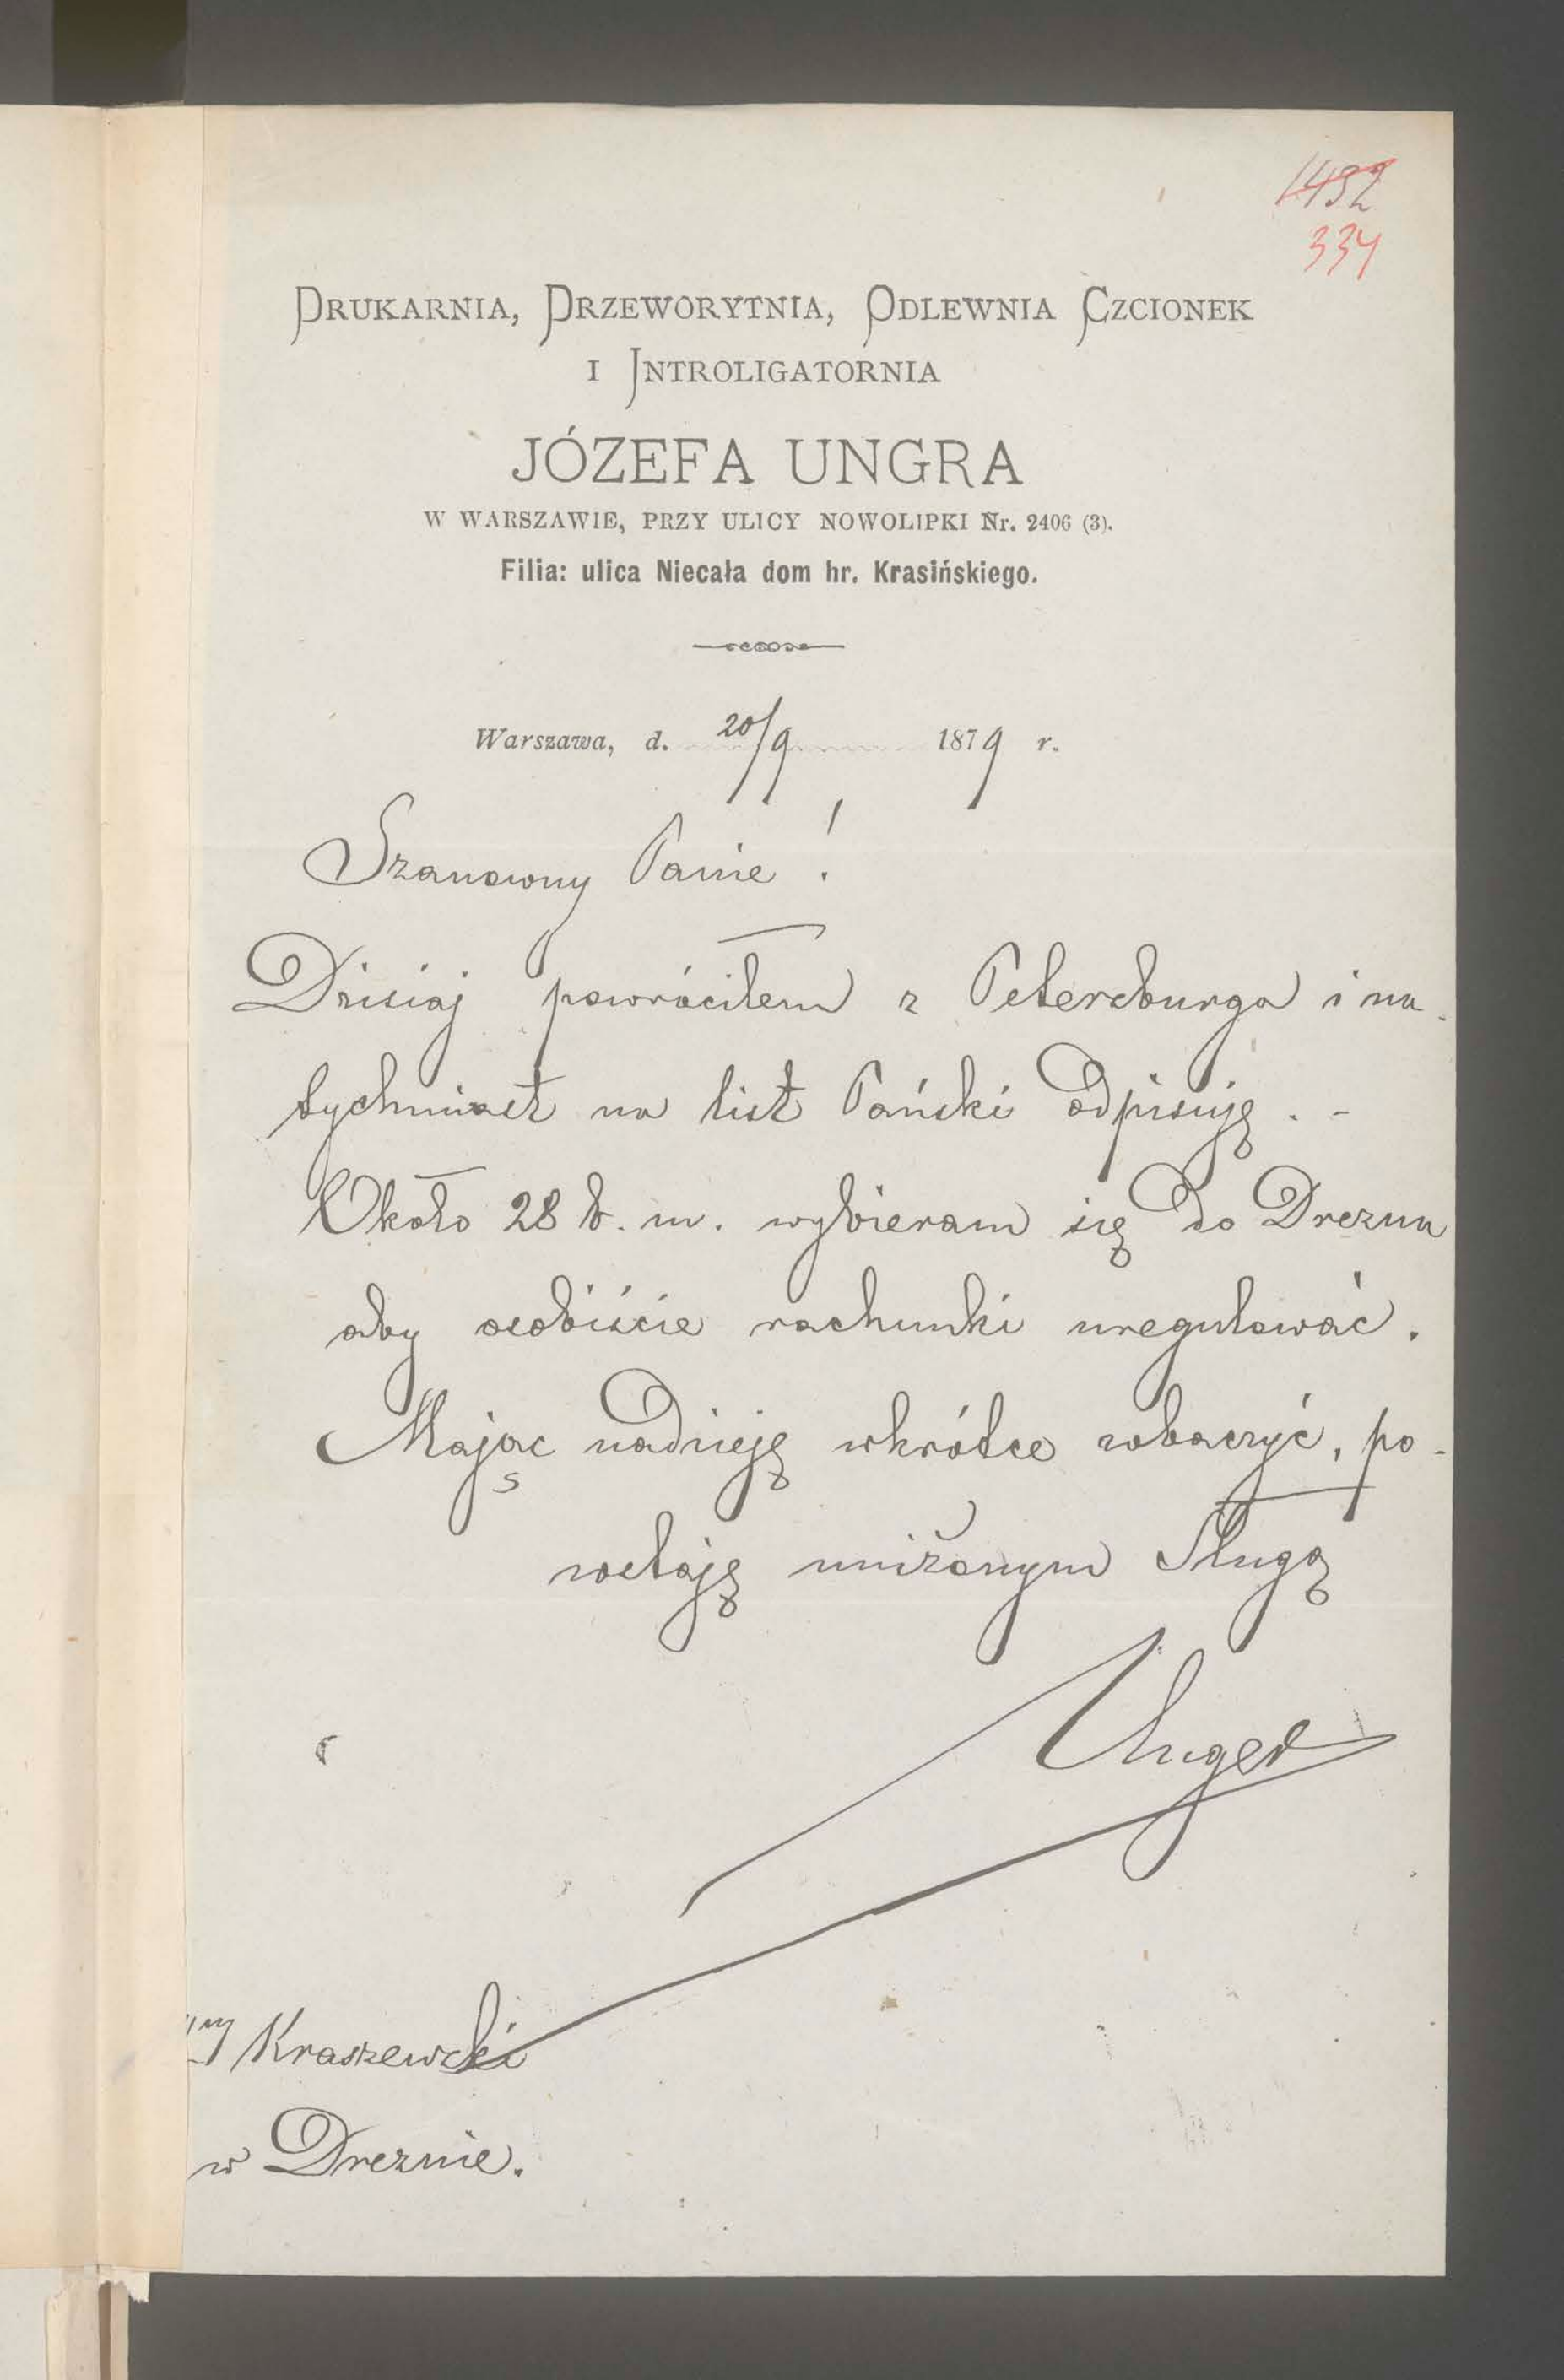 1432
334
DRUKARNIA, DRZEWORYTNIA, ODLEWNIA CZCIONEK
I INTROLIGATORNIA
JÓZEFA UNGRA
W WARSZAWIE, PRZY ULICY NOWOLIPKI Nr. 2406 (3).
Filia: ulica Niecała dom hr. Krasińskiego.
Warszawa, d. 20/9 1879 r.
Szanowny Panie!
Dzisiaj powróciłem z Petersburga i na-
tychmiast na list Pański odpisuję. -
Około 28 b. m. wybieram się do Drezna
aby osobiście rachunki uregulować.
Mając nadzieję wkrótce zobaczyć, po-
zostaję uniżonym Sługą
Unger
Kraszewski
w Dreznie.